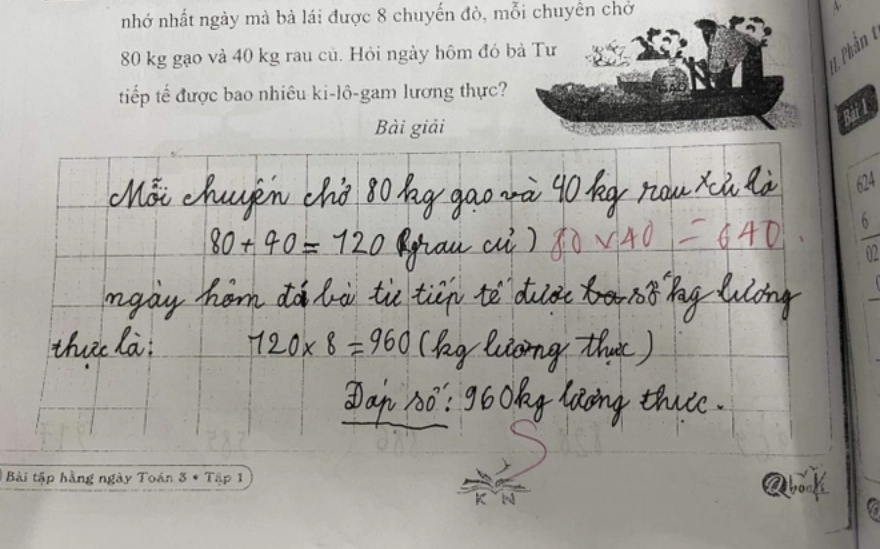 nhớ nhất ngày mà bà lái được 8 chuyến đò, mỗi chuyến chở
80 kg gạo và 40 kg rau củ. Hỏi ngày hôm đó bà Tư
tiếp tế được bao nhiêu ki-lô-gam lương thực?
GẠO
Bài giải
Mỗi chuyến chở 80 kg gạo và 40 kg rau củ là
80 + 40 = 120 (kg rau củ) 80 x 40 = 640
ngày hôm đó bà tư tiếp tế được số kg lương
thực là: 120 x 8 = 960 (kg lương thực)
Đáp số: 960kg lương thực.
S
Bài tập hằng ngày Toán 3 • Tập 1
K N
@books
II. Phần t
Bài 1
624
6
02